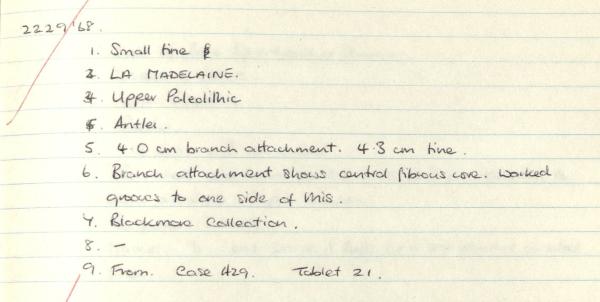 2229'68.
1. Small tine
2. LA MADELAINE.
3. Upper Paleolithic
4. Antler.
5. 4.0 cm branch attachment. 4.3 cm tine.
6. Branch attachment shows central fibrous core. Worked
grooves to one side of this.
7. Blackmore Collection.
8. –
9. From. Case 429. Tablet 21.